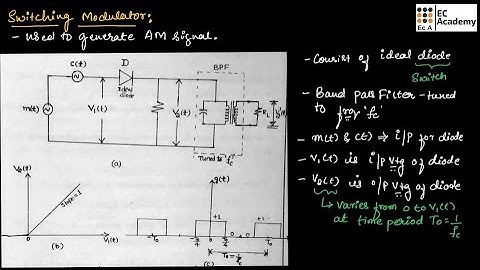 Switching Modulator:
- used to generate AM signal.
EC
Academy
EC A
c(t)
D
Ideal
diode
m(t)
V₁(t)
V₂(t)
BPF
RL
Tuned to fc
(a)
- Consist of ideal diode
Switch
- Band pass Filter - tuned
to frq 'fc'
- m(t) & c(t) ⇒ i/p for diode
- V₁(t) is i/p Vtg of diode
- V₂(t) is o/p Vtg of diode
↳ varies from 0 to V₁(t)
at time period T₀ = 1/fc
V₂(t)
Slope=1
0
V₁(t)
(b)
g(t)
+1
+1
-T₀
0
T₀
T₀ = 1/fc
(c)